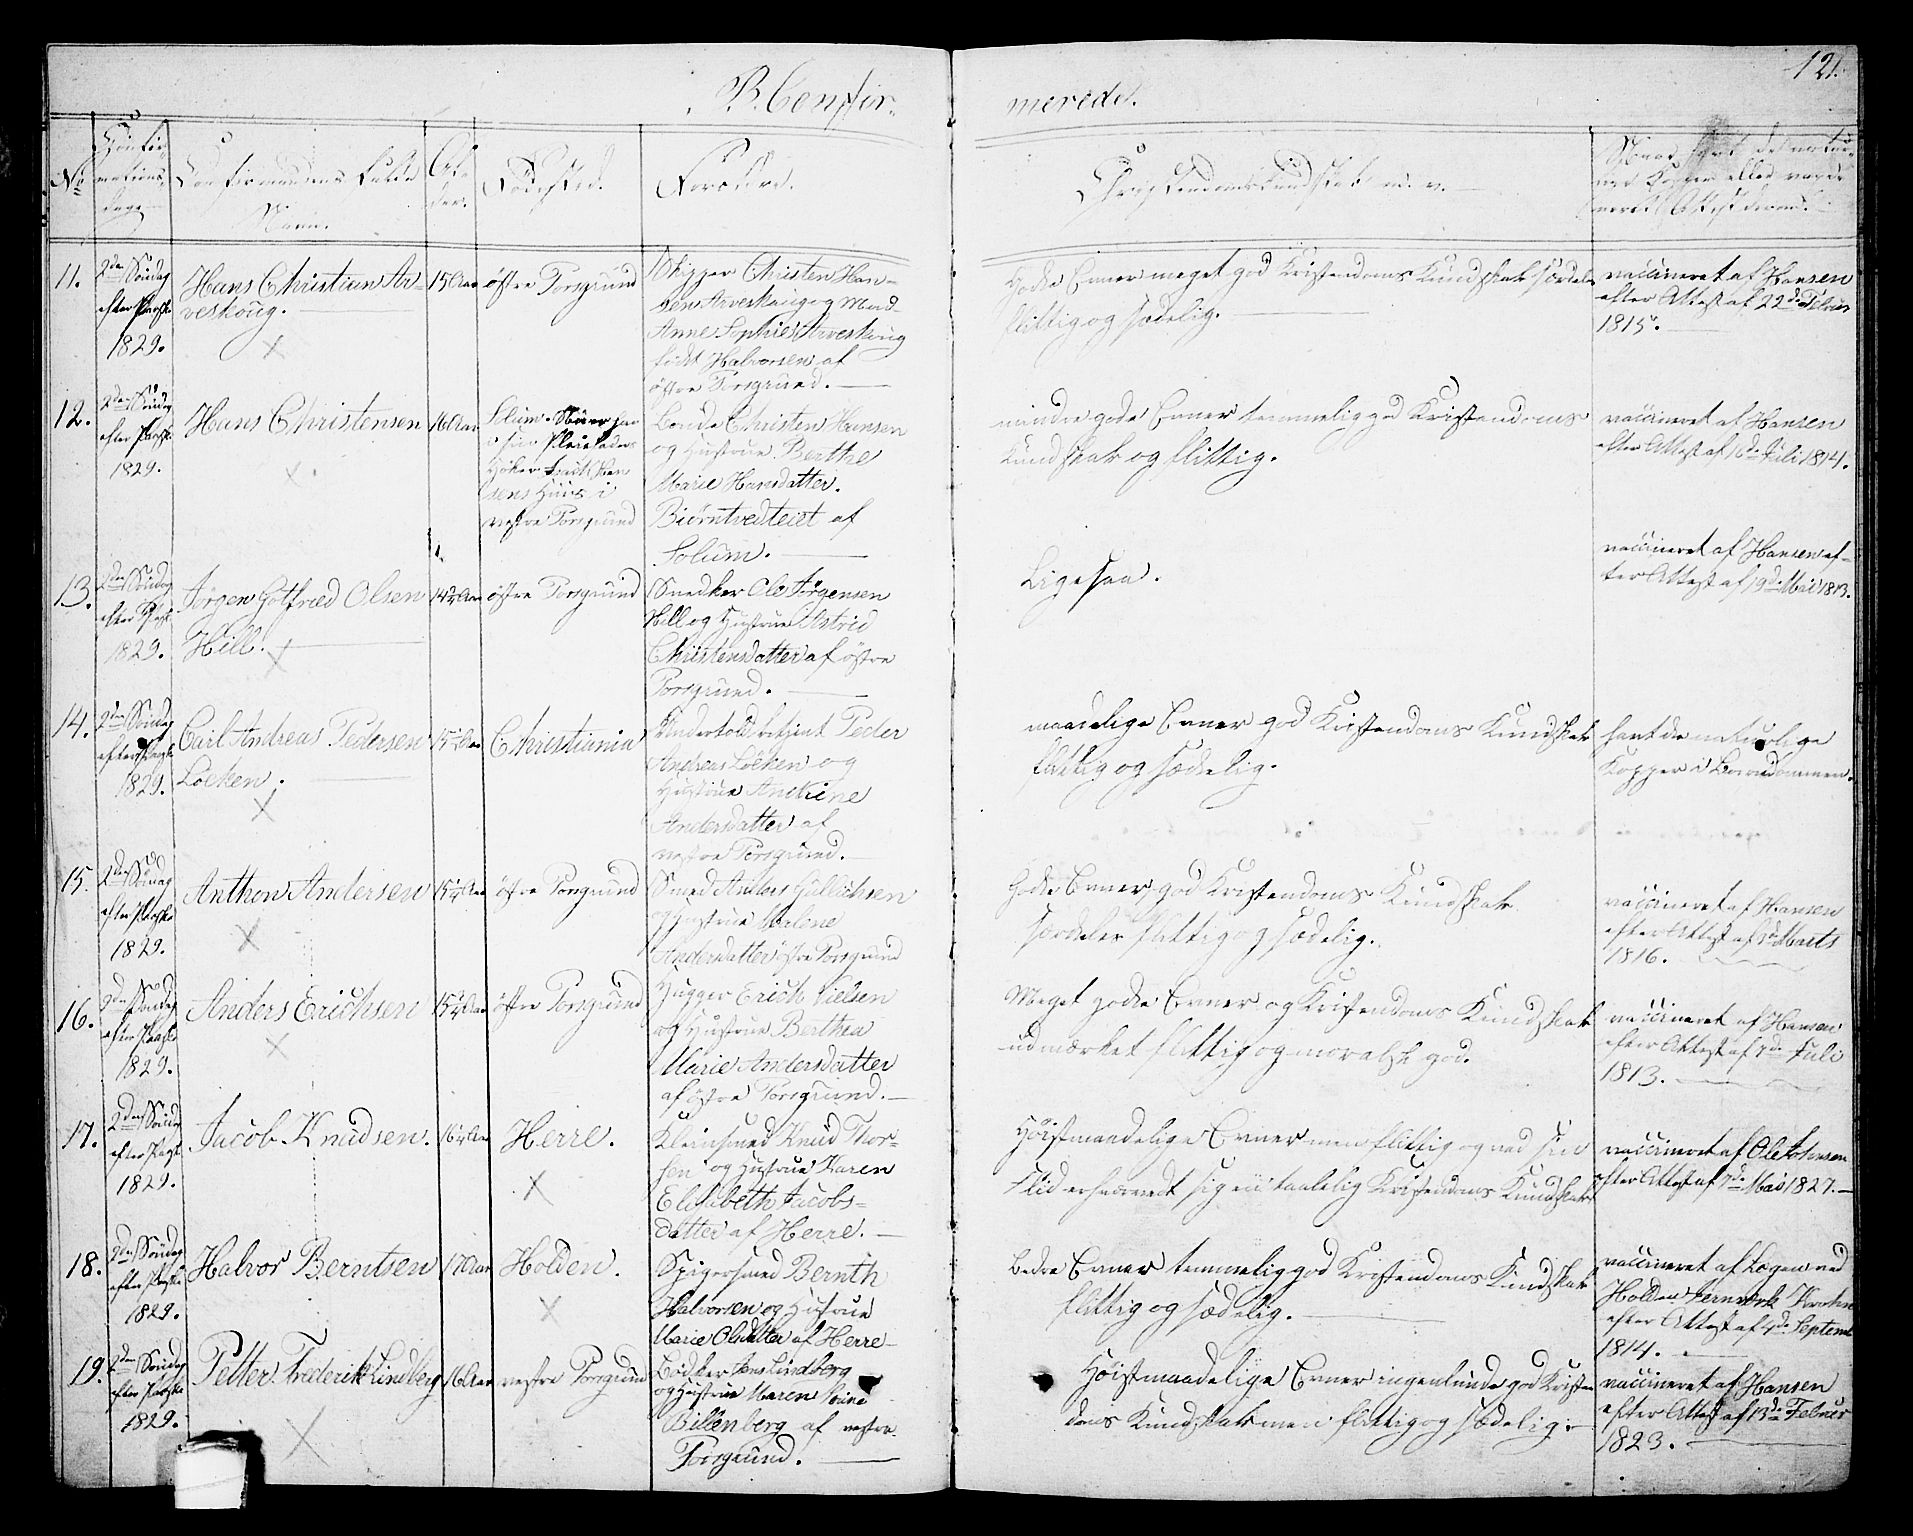 121.
B. Confir-
meredé.
No
Confir-
mations-
dage
Confirmandens fulde
Navn.
Al-
der.
Fødested.
Forældre.
Christendomskundskab m. v.
11.
2den Søndag
efter Paaske
1829.
Hans Christian Ar-
veskoug.
15 Aar
østre Porsgrund
Skipper Christen Han-
sen Arveskoug og Mad.
Anne Sophie Arveskoug
født Halvorsen af
østre Porsgrund.
Gode Evner meget god Kristendoms Kundskab særdeles
flittig og sædelig.
vaccineret af Hansen
efter Attest af 22de Februar
1815.
12.
2den Søndag
efter Paaske
1829.
Hans Christensen
16 Aar
Solum
Høker
sens Huus i
vestre Porsgrund
Bonde Christen Hansen
og Hustrue Berthe
Marie Hansdatter.
Biørntvedteiet af
Solum.
mindre gode Evner temmelig god Kristendoms
Kundskab og flittig.
vaccineret af Hansen
efter Attest af 16de Juli 1814.
13.
2den Søndag
efter Paaske
1829.
Jørgen Gotfried Olsen
Hill.
14½ Aar
østre Porsgrund
Snedker Ole Jørgensen
Hill og Hustrue Astrid
Christensdatter af østre
Porsgrund.
Ligesaa.
vaccineret af Hansen ef-
ter Attest af 19de Mai 1813.
14.
2den Søndag
efter Paaske
1829.
Carl Andreas Pedersen
Løcken.
15½ Aar
Christiania
Undertoldbetjent Peder
Andreas Løcken og
Hustrue Anckine
Andersdatter af
vestre Porsgrund.
maadelige Evner god Kristendoms Kundskab
flittig og sædelig.
havt de naturlige
Kopper i Barndommen.
15.
2den Søndag
efter Paaske
1829.
Anthon Andersen
15¼ Aar
østre Porsgrund
Smed Anders Gullichsen
og Hustrue Marlene
Andersdatter østre Porsgrund
Gode Evner, god Kristendoms Kundskab
særdeles flittig og sædelig.
vaccineret af Hansen
efter Attest af Marts
1816.
16.
2den Søndag
efter Paaske
1829.
Anders Erichsen
15¾ Aar
østre Porsgrund
Hugger Erich Nielsen
og Hustrue Berthea
Marie Andersdatter
af østre Porsgrund.
Meget gode Evner og Kristendoms Kundskab
udmærket flittig og moralsk god.
vaccineret af Hansen
efter Attest af 7de Juli
1813.
17.
2den Søndag
efter Paaske
1829.
Jacob Knudsen.
16¼ Aar
Herre.
Kleinsmed Knud Thor-
sen og Hustrue Karen
Elisabeth Jacobs-
datter af Herre.
Høistmaadelige Evner men flittig og ved sin
Flid erhvervedt sig en taalelig Kristendoms Kundskab
vaccineret af Ole Johnsen
efter Attest af 7de Mai 1827.
18.
2den Søndag
efter Paaske
1829.
Halvor Berntsen
17 Aar
Holden.
Spigersmed Bernth
Halvorsen og Hustrue
Marie Olsdatter af Herre
Bedre Evner temmelig god Kristendoms Kundskab
flittig og sædelig.
vaccineret af Lægen ved
Holdens Jernværk Krohn
efter Attest af 4de Septemb
1814.
19.
2den Søndag
efter Paaske
1829.
Petter Frederik Lindberg
16 Aar
vestre Porsgrund
Bødker Jens Lindberg
og Hustrue Maren
Billenberg af vestre
Porsgrund.
Høistmaadelige Evner ingenlunde god Kristen
doms Kundskab men flittig og sædelig.
vaccineret af Hansen
efter Attest af 13de Februar
1823.